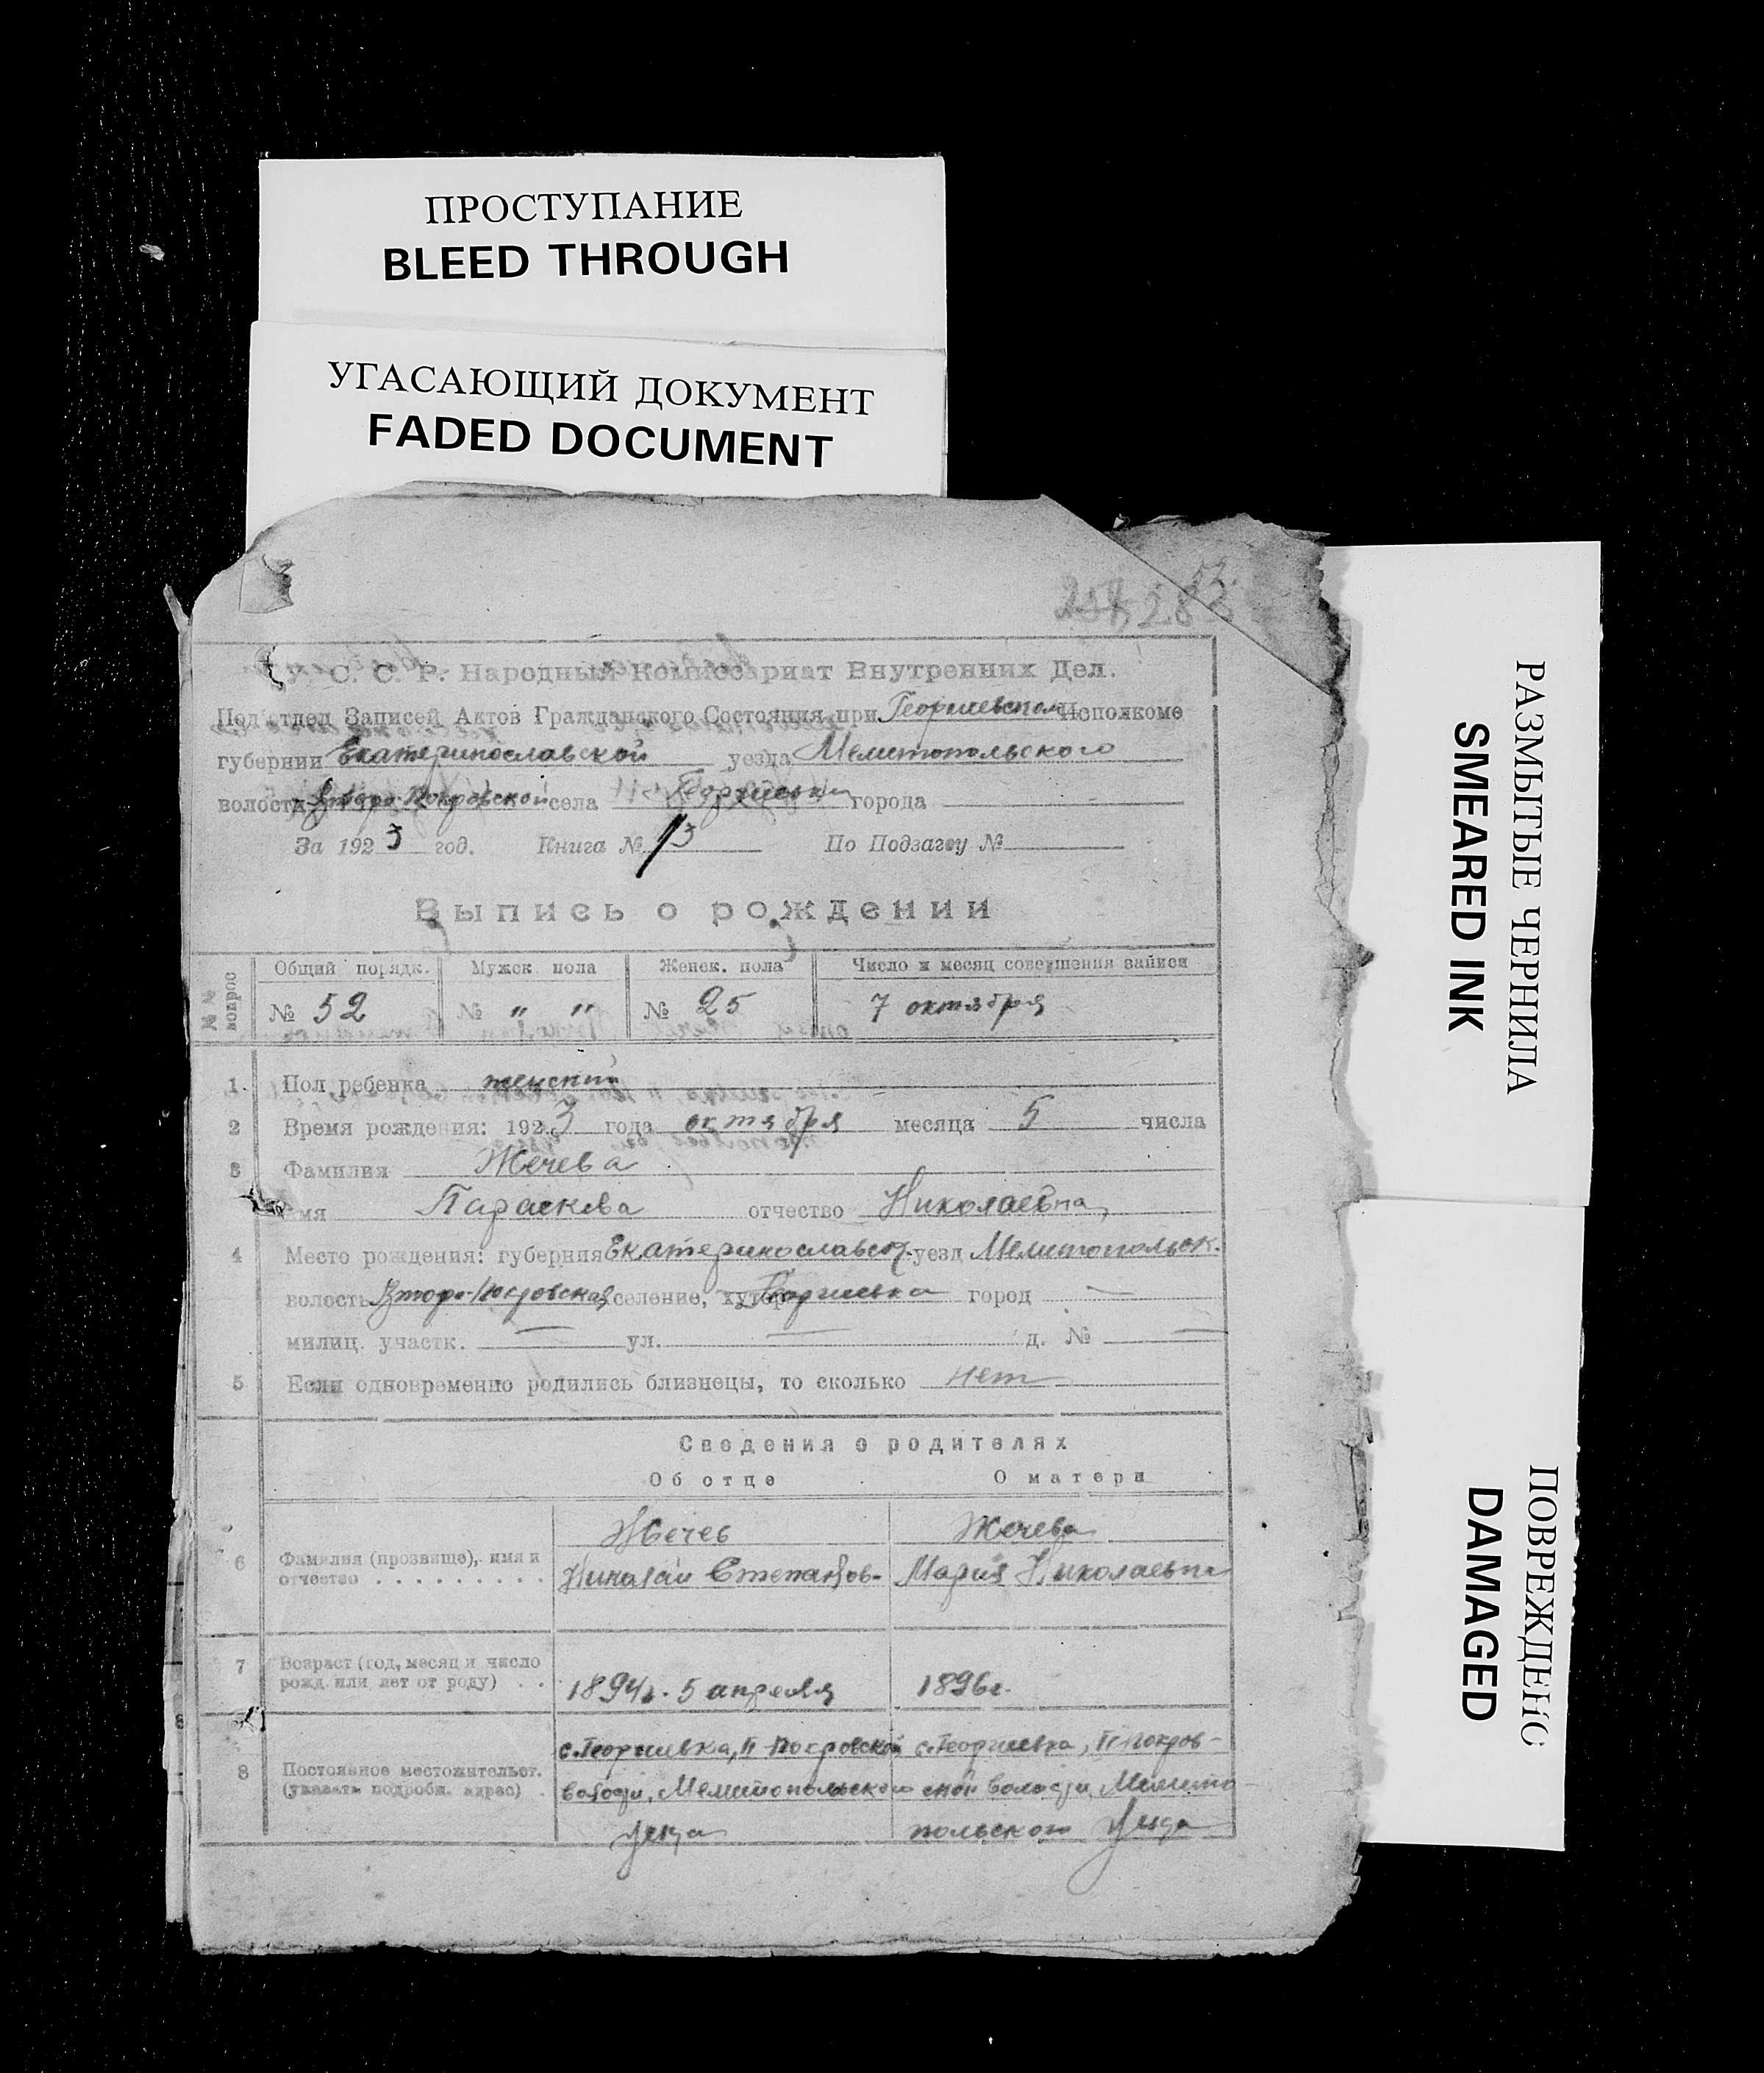 ПРОСТУПАНИЕ
BLEED THROUGH
УГАСАЮЩИЙ ДОКУМЕНТ
FADED DOCUMENT
У. С. С. Р. Народный Комиссариат Внутренних Дел.
Под'отдел Записей Актов Гражданского Состояния при Георгиевском Исполкоме
губернии Екатеринославской уезда Мелитопольского
волости Второ-Покровской села Георгиевки города —
За 1923 год. Книга № 13 По Подзагсу №
Выпись о рождении
№№ вопрос Общий порядк. Мужск. пола Женск. пола Число и месяц совершения записи
№ 52 № " " № 25 7 октября
1. Пол ребенка женский
2 Время рождения: 1923 года октября месяца 5 числа
3 Фамилия Жечева
Имя Параскева отчество Николаевна
4 Место рождения: губерния Екатеринославск. уезд Мелитопольск.
волость Второ-Покровская селение, хутор Георгиевка город —
милиц. участк. — ул. — д. № —
5 Если одновременно родились близнецы, то сколько нет
Сведения о родителях
Об отце О матери
6 Фамилия (прозвище), имя и отчество . . . . . . . . .
Жечев
Николай Степанов-
Жечева
Мария Николаевна
7 Возраст (год, месяц и число рожд. или лет от роду) . .
1894г. 5 апреля
1896г.
8 Постоянное местожительст. (указать подробн. адрес) .
с. Георгиевка, II Покровской
волости, Мелитопольского
уезда
с. Георгиевка, II Покров-
ской волости, Мелито-
польского уезда
РАЗМЫТЫЕ ЧЕРНИЛА
SMEARED INK
ПОВРЕЖДЕНО
DAMAGED